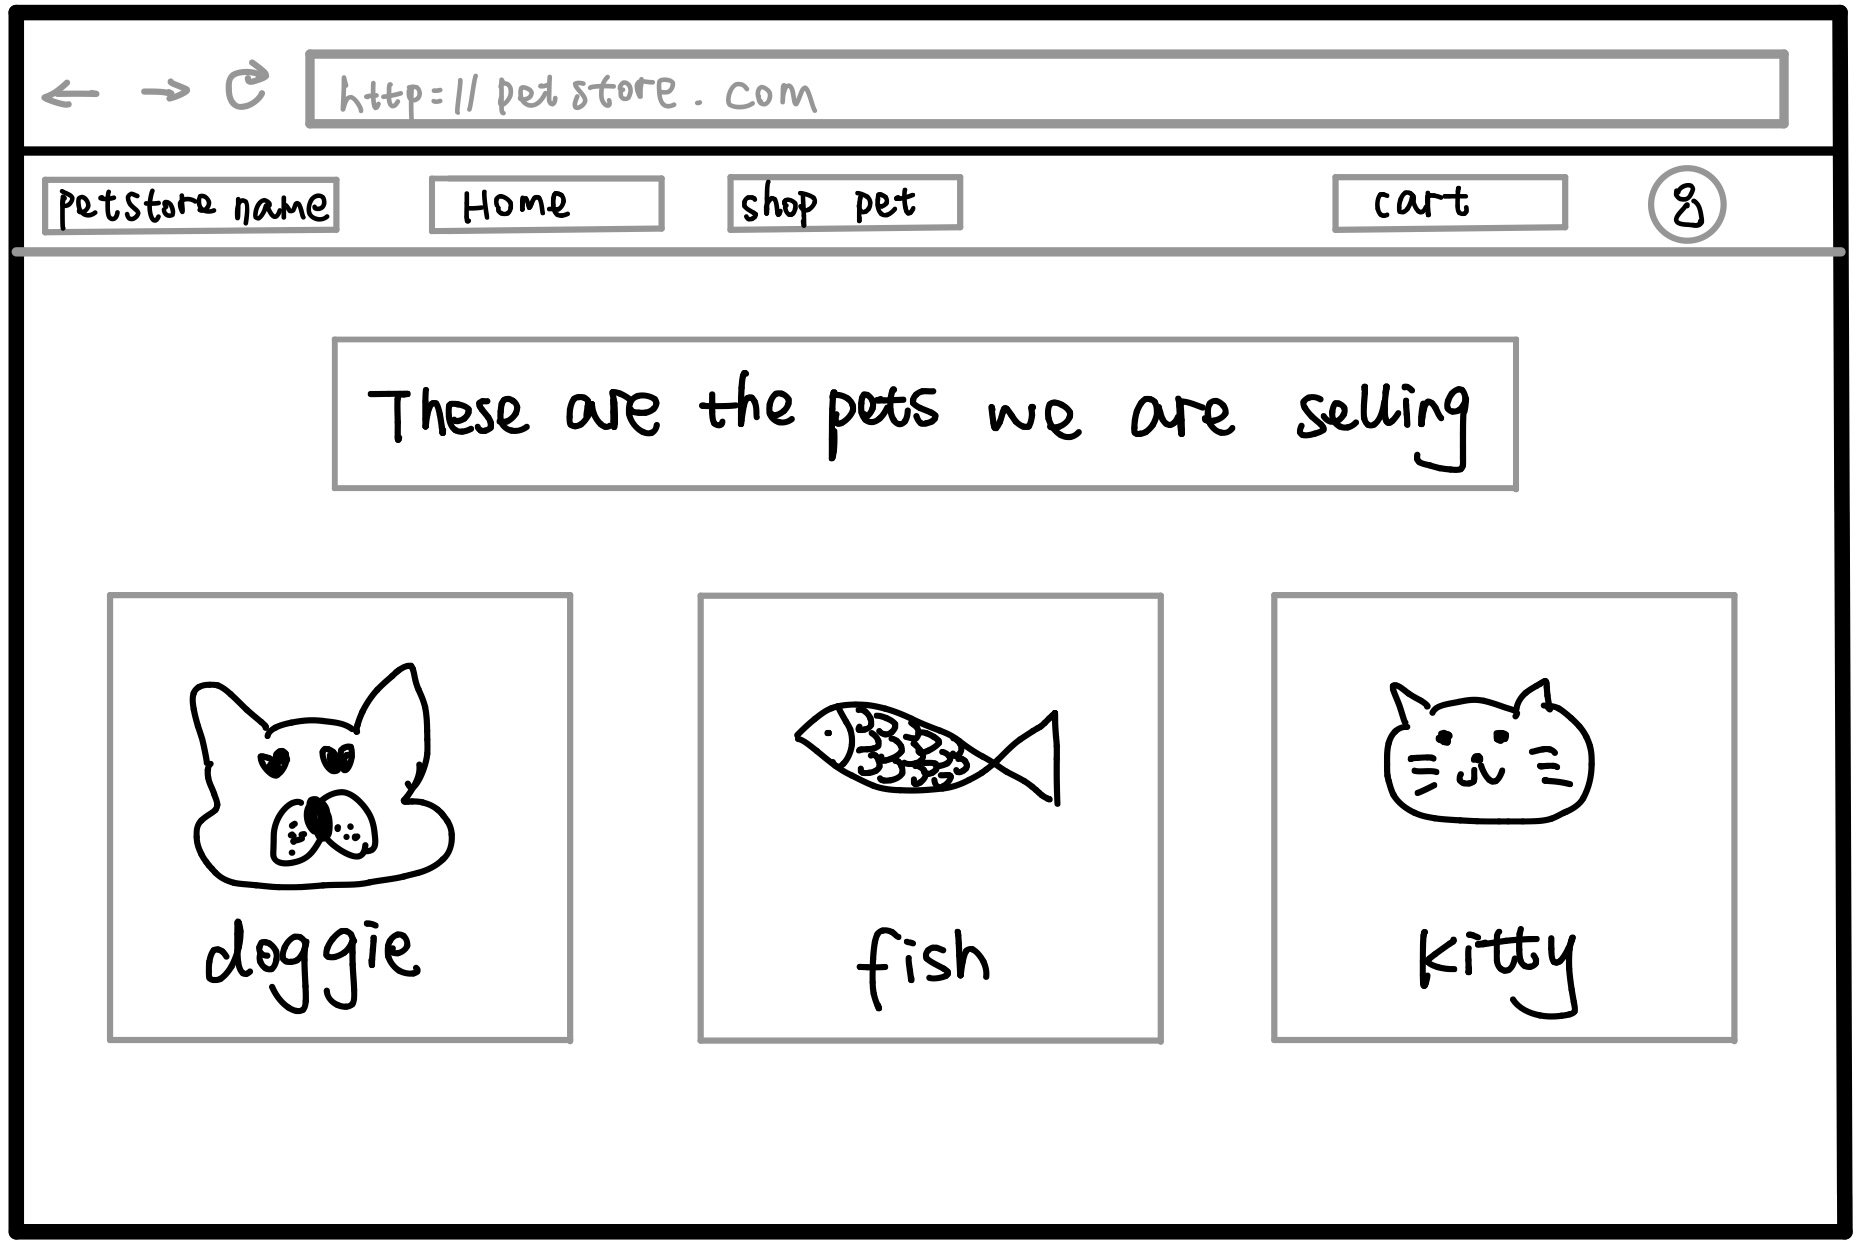 http://petstore.com
petstore name Home shop pet cart
These are the pets we are selling
doggie fish kitty